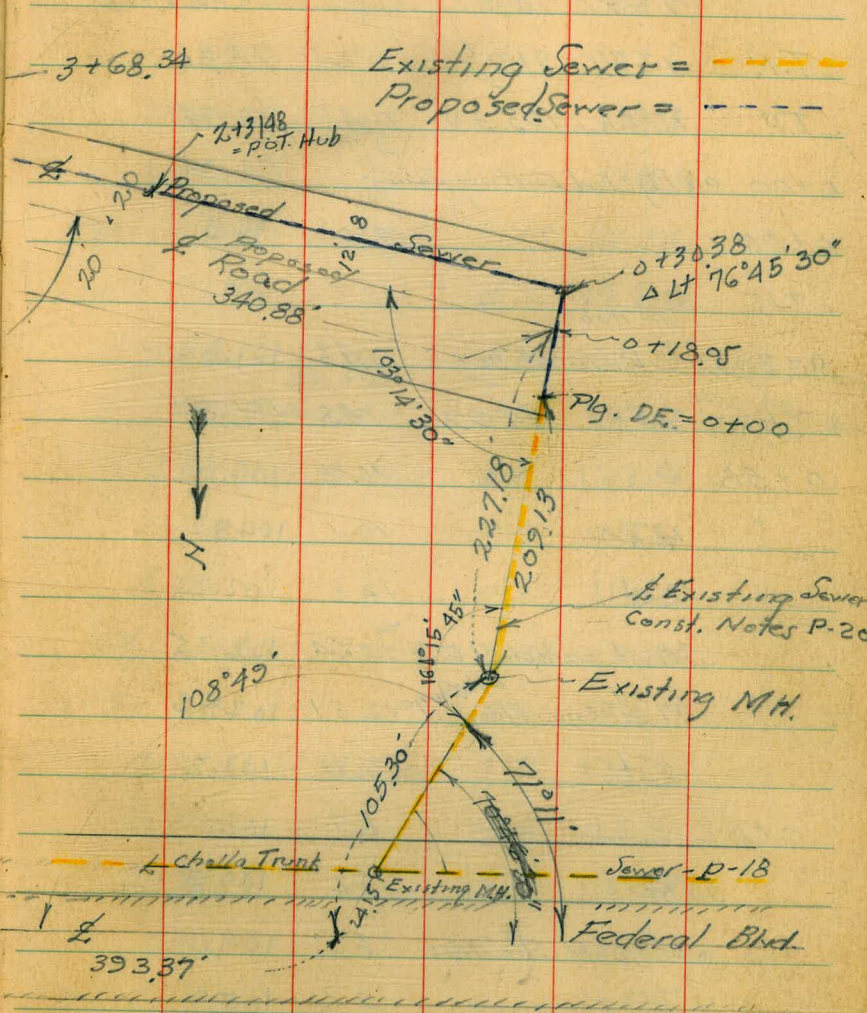 3+68.34
Existing Sewer =
Proposed Sewer =
2+31.48
= P.O.T. Hub
℄
20' 20'
Proposed Sewer
12' 8
℄ Proposed
Road
340.88'
0+30.38
Δ Lt 76°45'30"
0+18.95
103°14'30"
Plg. D.E. = 0+00
227.18'
209.13
N
℄ Existing Sewer
Const. Notes P-20
161°15'45"
108°49'
Existing M.H.
105.30'
71°11'
℄ Cholla Trunk Sewer - P-18
24.15
Existing M.H.
℄
Federal Blvd.
393.37'